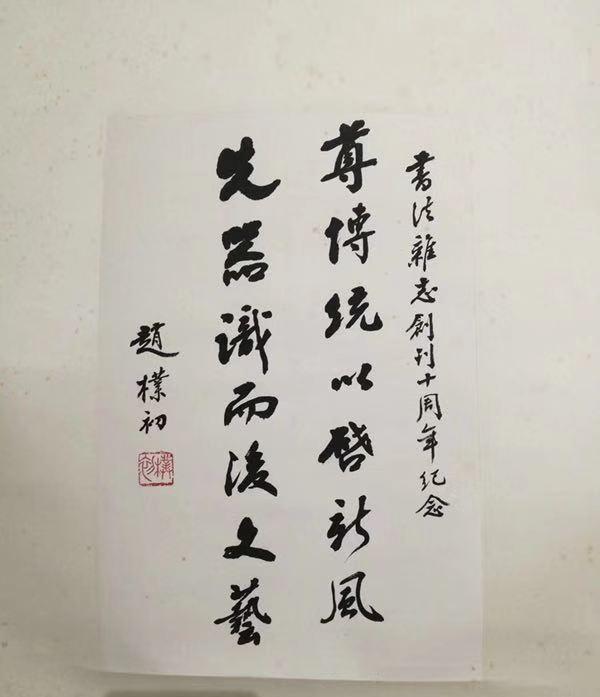 書法雜志創刊十周年纪念
尊傳统以啓新風
先器識而後文藝
趙樸初
樸初